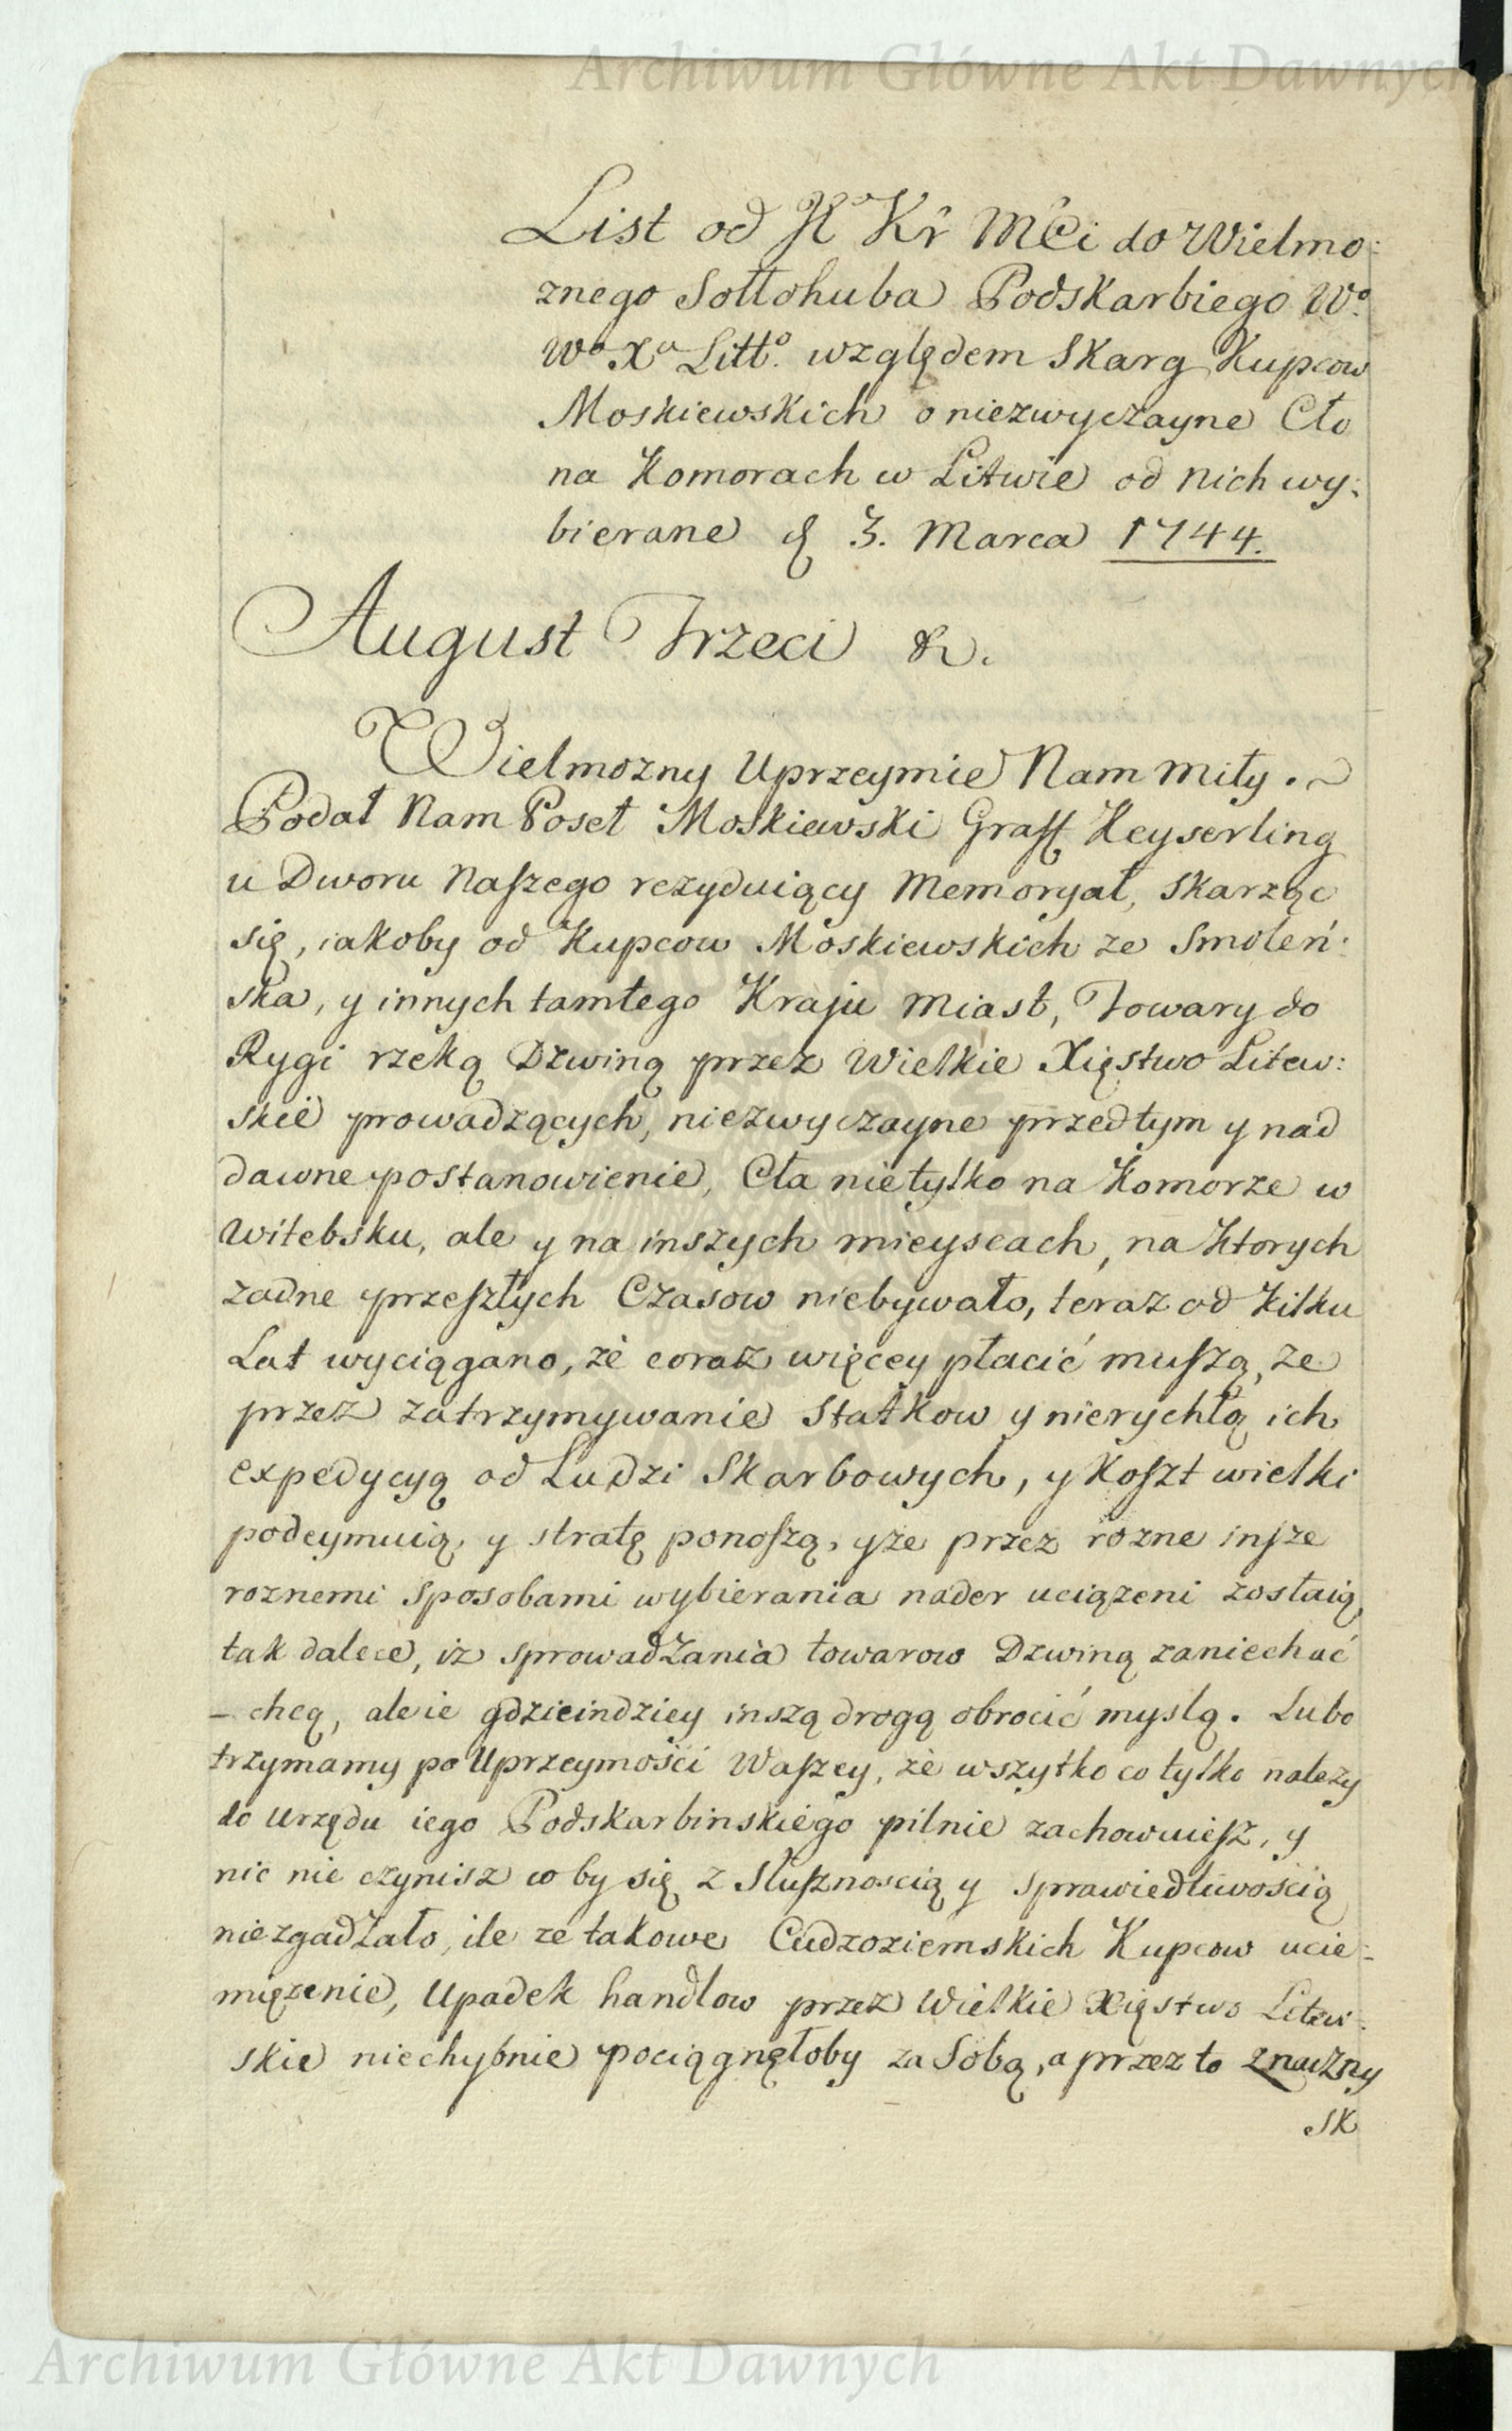 Archiwum Główne Akt Dawnych
List od K Kr MCi do Wielmo:
znego Sołłohuba Podskarbiego Wo.
Wo Xa Litto. względem Skarg Kupcow
Moskiewskich o niezwyczayne Cło
na Komorach w Litwie od nich wy:
bierane d 3. Marca 1744.
August Trzeci &.
Wielmozny Uprzeymie Nam miły. ~
Podał Nam Poseł Moskiewski Graff Keyserling
u Dworu Naszego rezyduiący Memoryał, skarząc
się, iakoby od Kupcow Moskiewskich ze Smoleń:
ska, y innych tamtego Kraju Miast, Towary do
Rygi rzeką Dzwiną przez Wielkie Xięstwo Litew:
skie prowadzących, niezwyczayne przedtym y nad
dawne postanowienie, Cła nietylko na Komorze w
Witebsku, ale y na inszych mieyscach, na ktorych
zadne przeszłych Czasow niebywało, teraz od kilku
Lat wyciągano, że coraz więcey płacić muszą, ze
przez zatrzymywanie Statkow y nierychłą ich
expedycyą od Ludzi Skarbowych, y koszt wielki
podeymuią, y stratę ponoszą, yże przez rozne insze
roznemi sposobami wybierania nader uciążeni zostaią,
tak dalece, iz sprowadzania towarow Dzwiną zaniechać
- chcą, aleie gdzieindziey inszą drogą obrocić myslą. Lubo
trzymamy po Uprzeymości Waszey, że wszytko co tylko nalezy
do Urzędu iego Podskarbinskiego pilnie zachowuiesz, y
nic nie czynisz co by się z Słusznoscią y sprawiedliwością
niezgadzało, ile ze takowe Cudzoziemskich Kupcow ucie:
mięzenie, Upadek handlow przez Wielkie Xięstwo Litew:
skie niechybnie pociągnęłoby za Sobą, a przez to znaczny
sk
Archiwum Główne Akt Dawnych